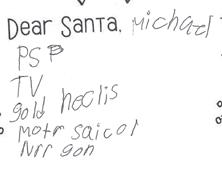 Dear Santa, Michael
PSP
TV
gold neclis
motr saicol
Nrr gon